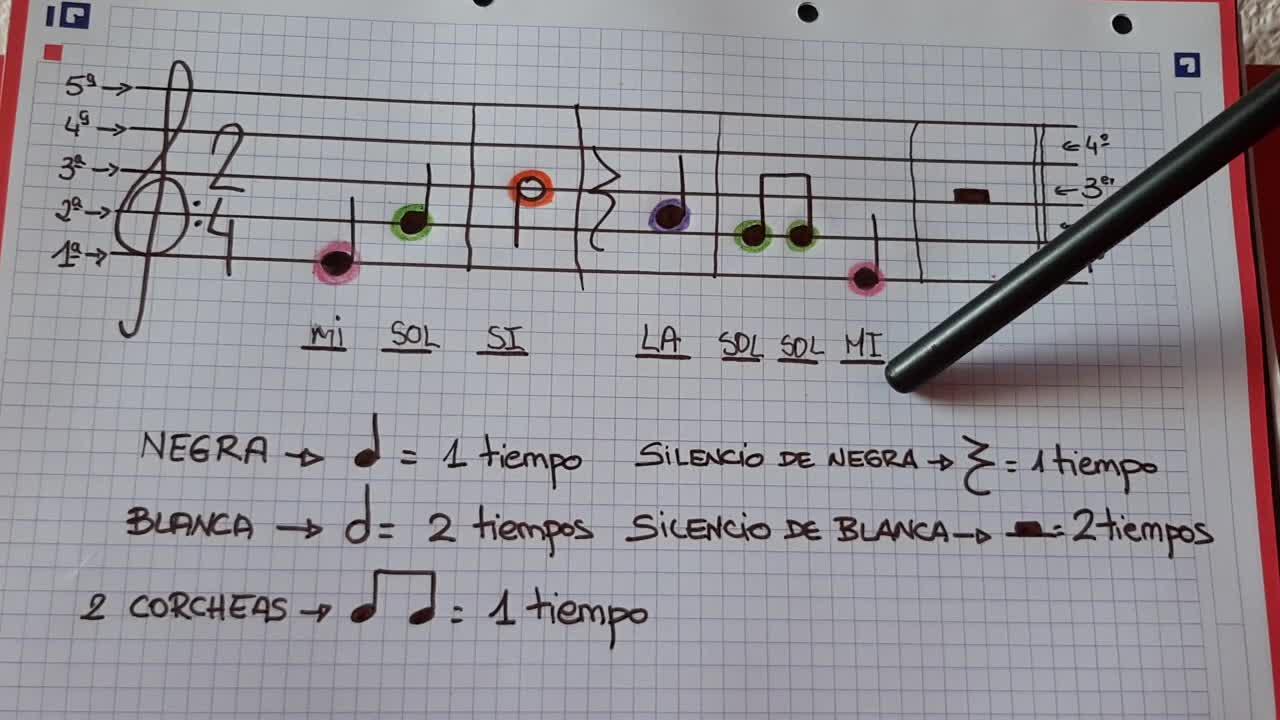 5ª →
4ª → ← 4º
3ª → 2 ← 3er
2ª → 4
1ª →
Mi SOL SI LA SOL SOL MI
NEGRA → = 1 tiempo SILENCIO DE NEGRA → = 1 tiempo
BLANCA → = 2 tiempos SILENCIO DE BLANCA → = 2 tiempos
2 CORCHEAS → = 1 tiempo